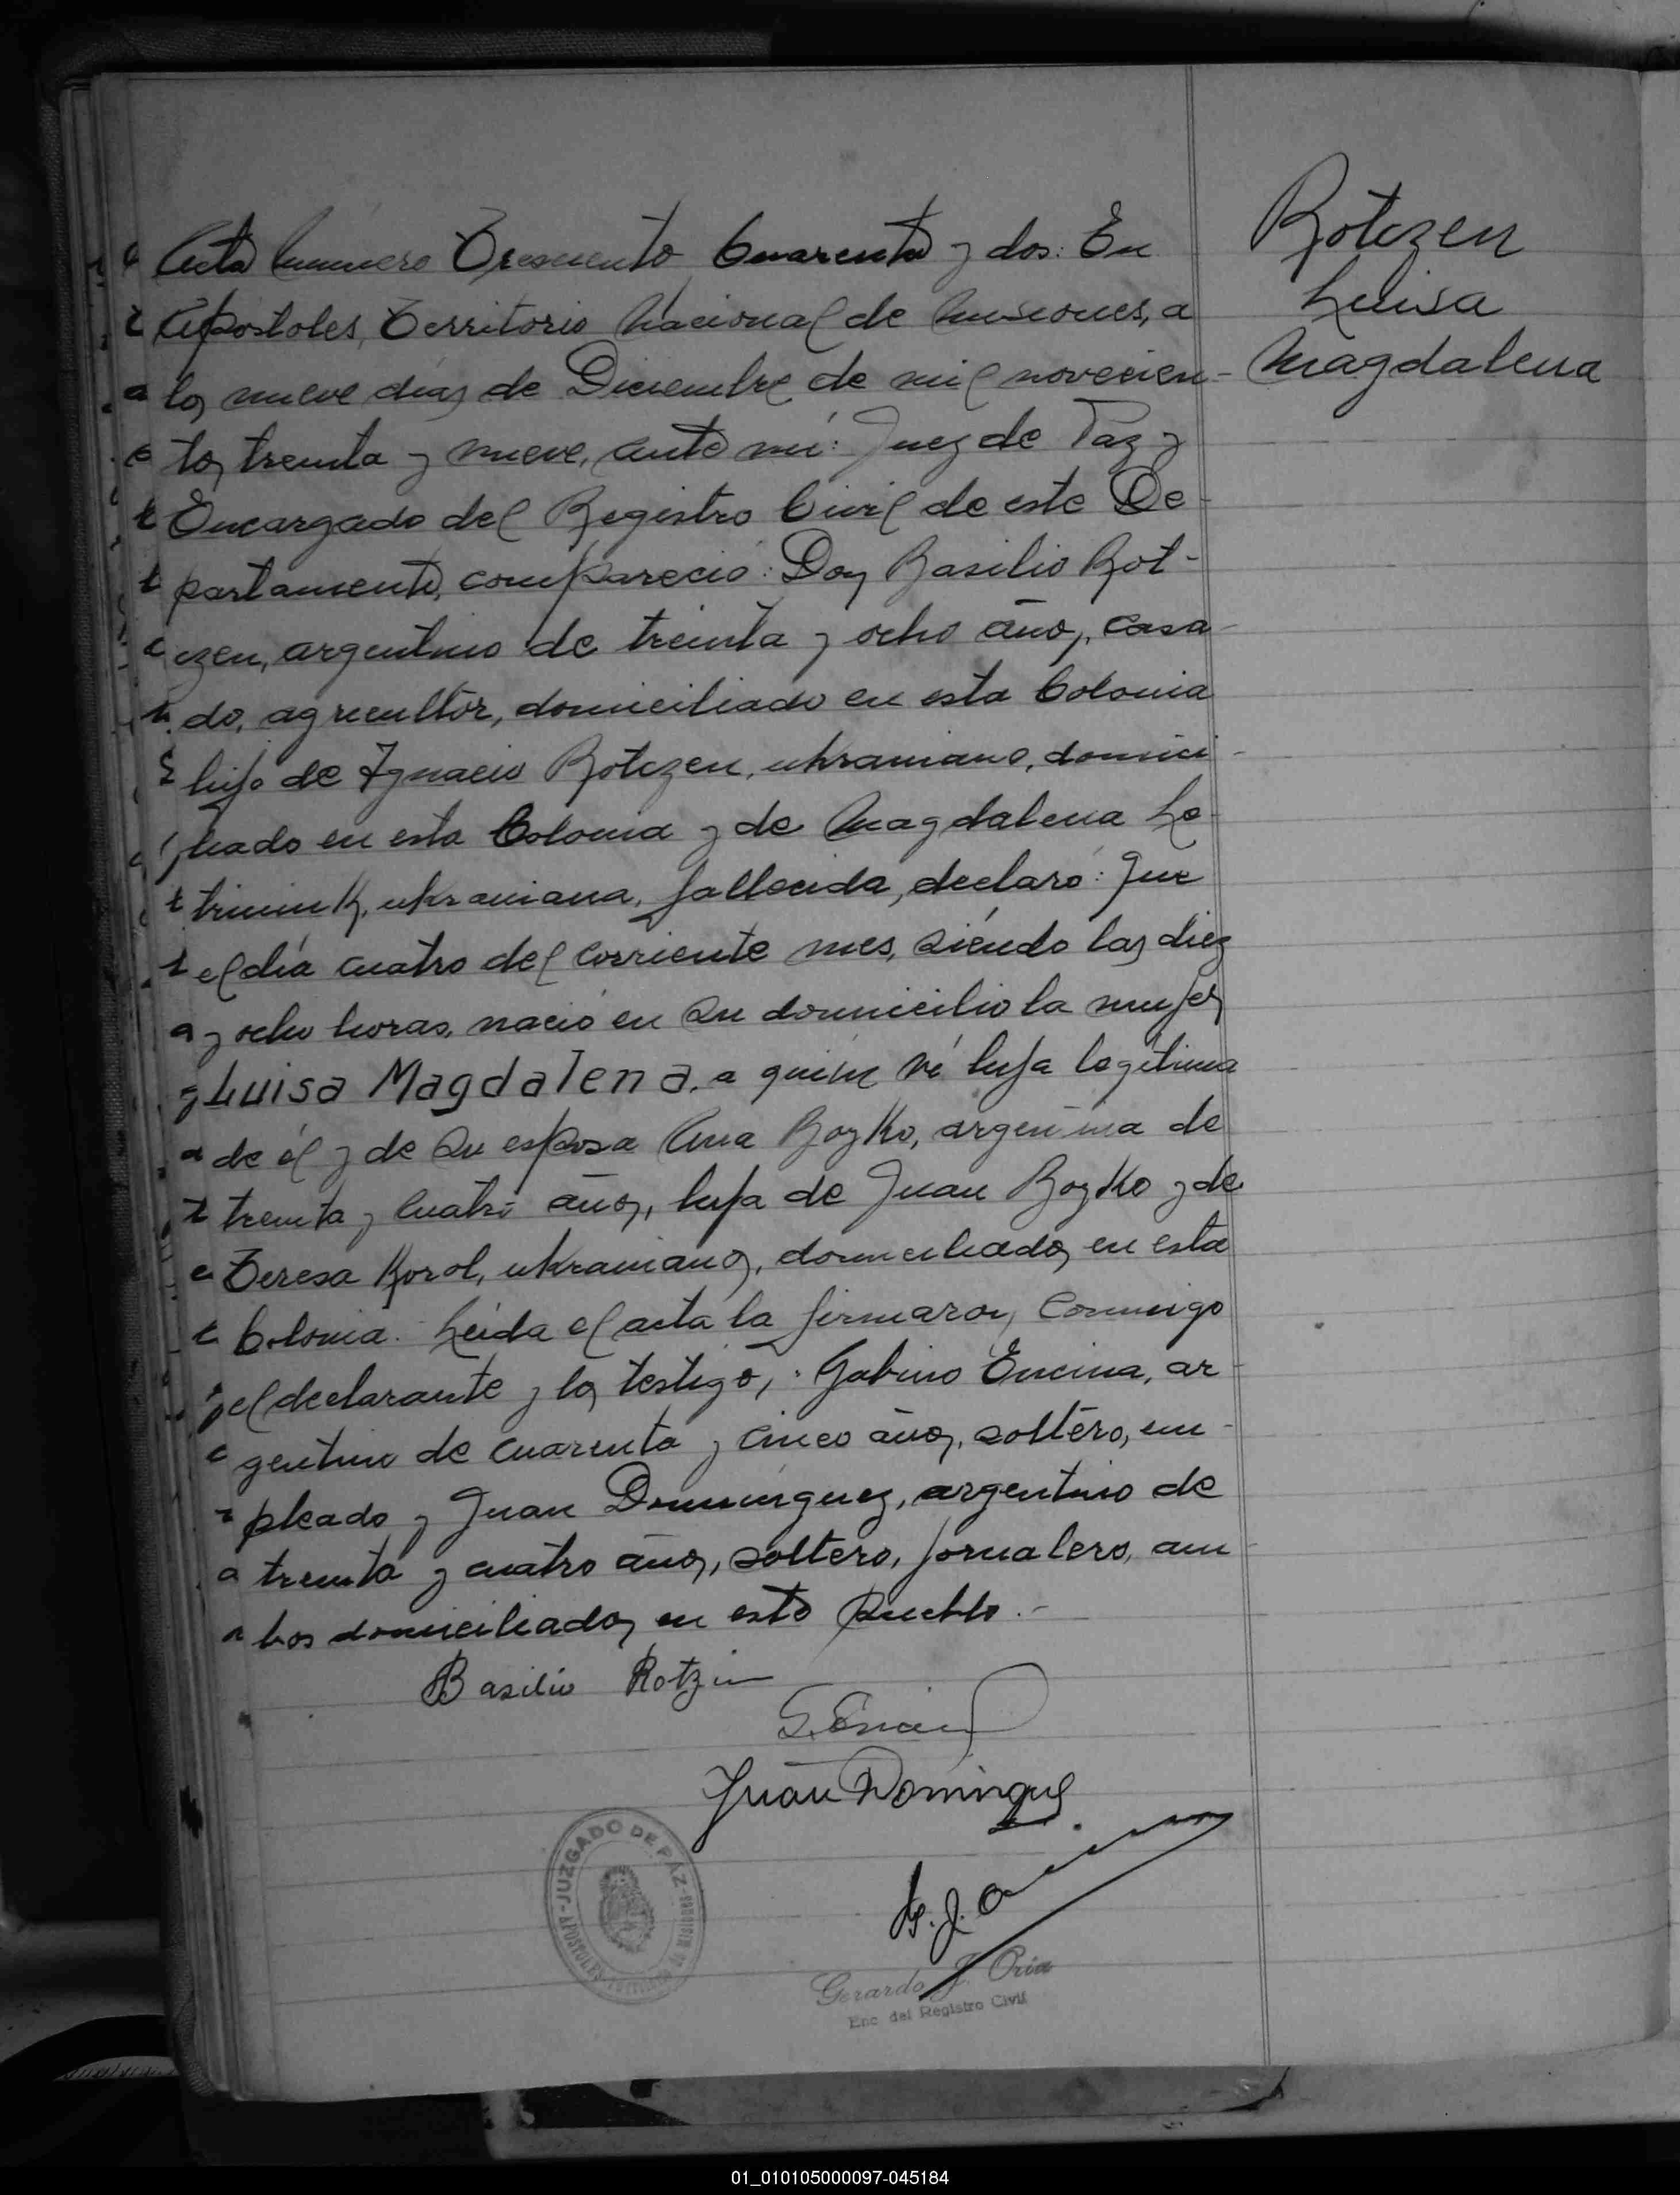 Acta número Trescento Cuarenta y dos: En
Apóstoles, Territorio Nacional de Misiones, a
los nueve días de Diciembre de mil novecien-
tos treinta y nueve, ante mí: Juez de Paz y
Encargado del Registro Civil de este De-
partamento, compareció: Don Basilio Rot-
czen, argentino de treinta y ocho años, casa-
do, agricultor, domiciliado en esta Colonia
hijo de Ignacio Rotczen, ukraniano, domici-
liado en esta Colonia y de Magdalena
ukraniana, fallecida, declaró: Que
el día cuatro del corriente mes, siéndo las diez
y ocho horas, nació en su domicilio la mujer
Luisa Magdalena, a quién ví hija legítima
de él y de su esposa Ana Boyko, argentina de
treinta y cuatro años, hija de Juan Boyko y de
Teresa Korol, ukranianos, domiciliados en esta
Colonia. Leída el acta la firmaron conmigo
el declarante y los testigos: Gabino Encina, ar-
gentino de cuarenta y cinco años, soltero, em-
pleado y Juan Domínguez, argentino de
treinta y cuatro años, soltero, jornalero, am-
bos domiciliados en este Pueblo.-
Rotczen
Luisa
Magdalena
Basilio Rotzin
Juan Domingues
JUZGADO DE PAZ
APOSTOLES
Gerardo J. Oria
Enc del Registro Civil
01_010105000097-045184